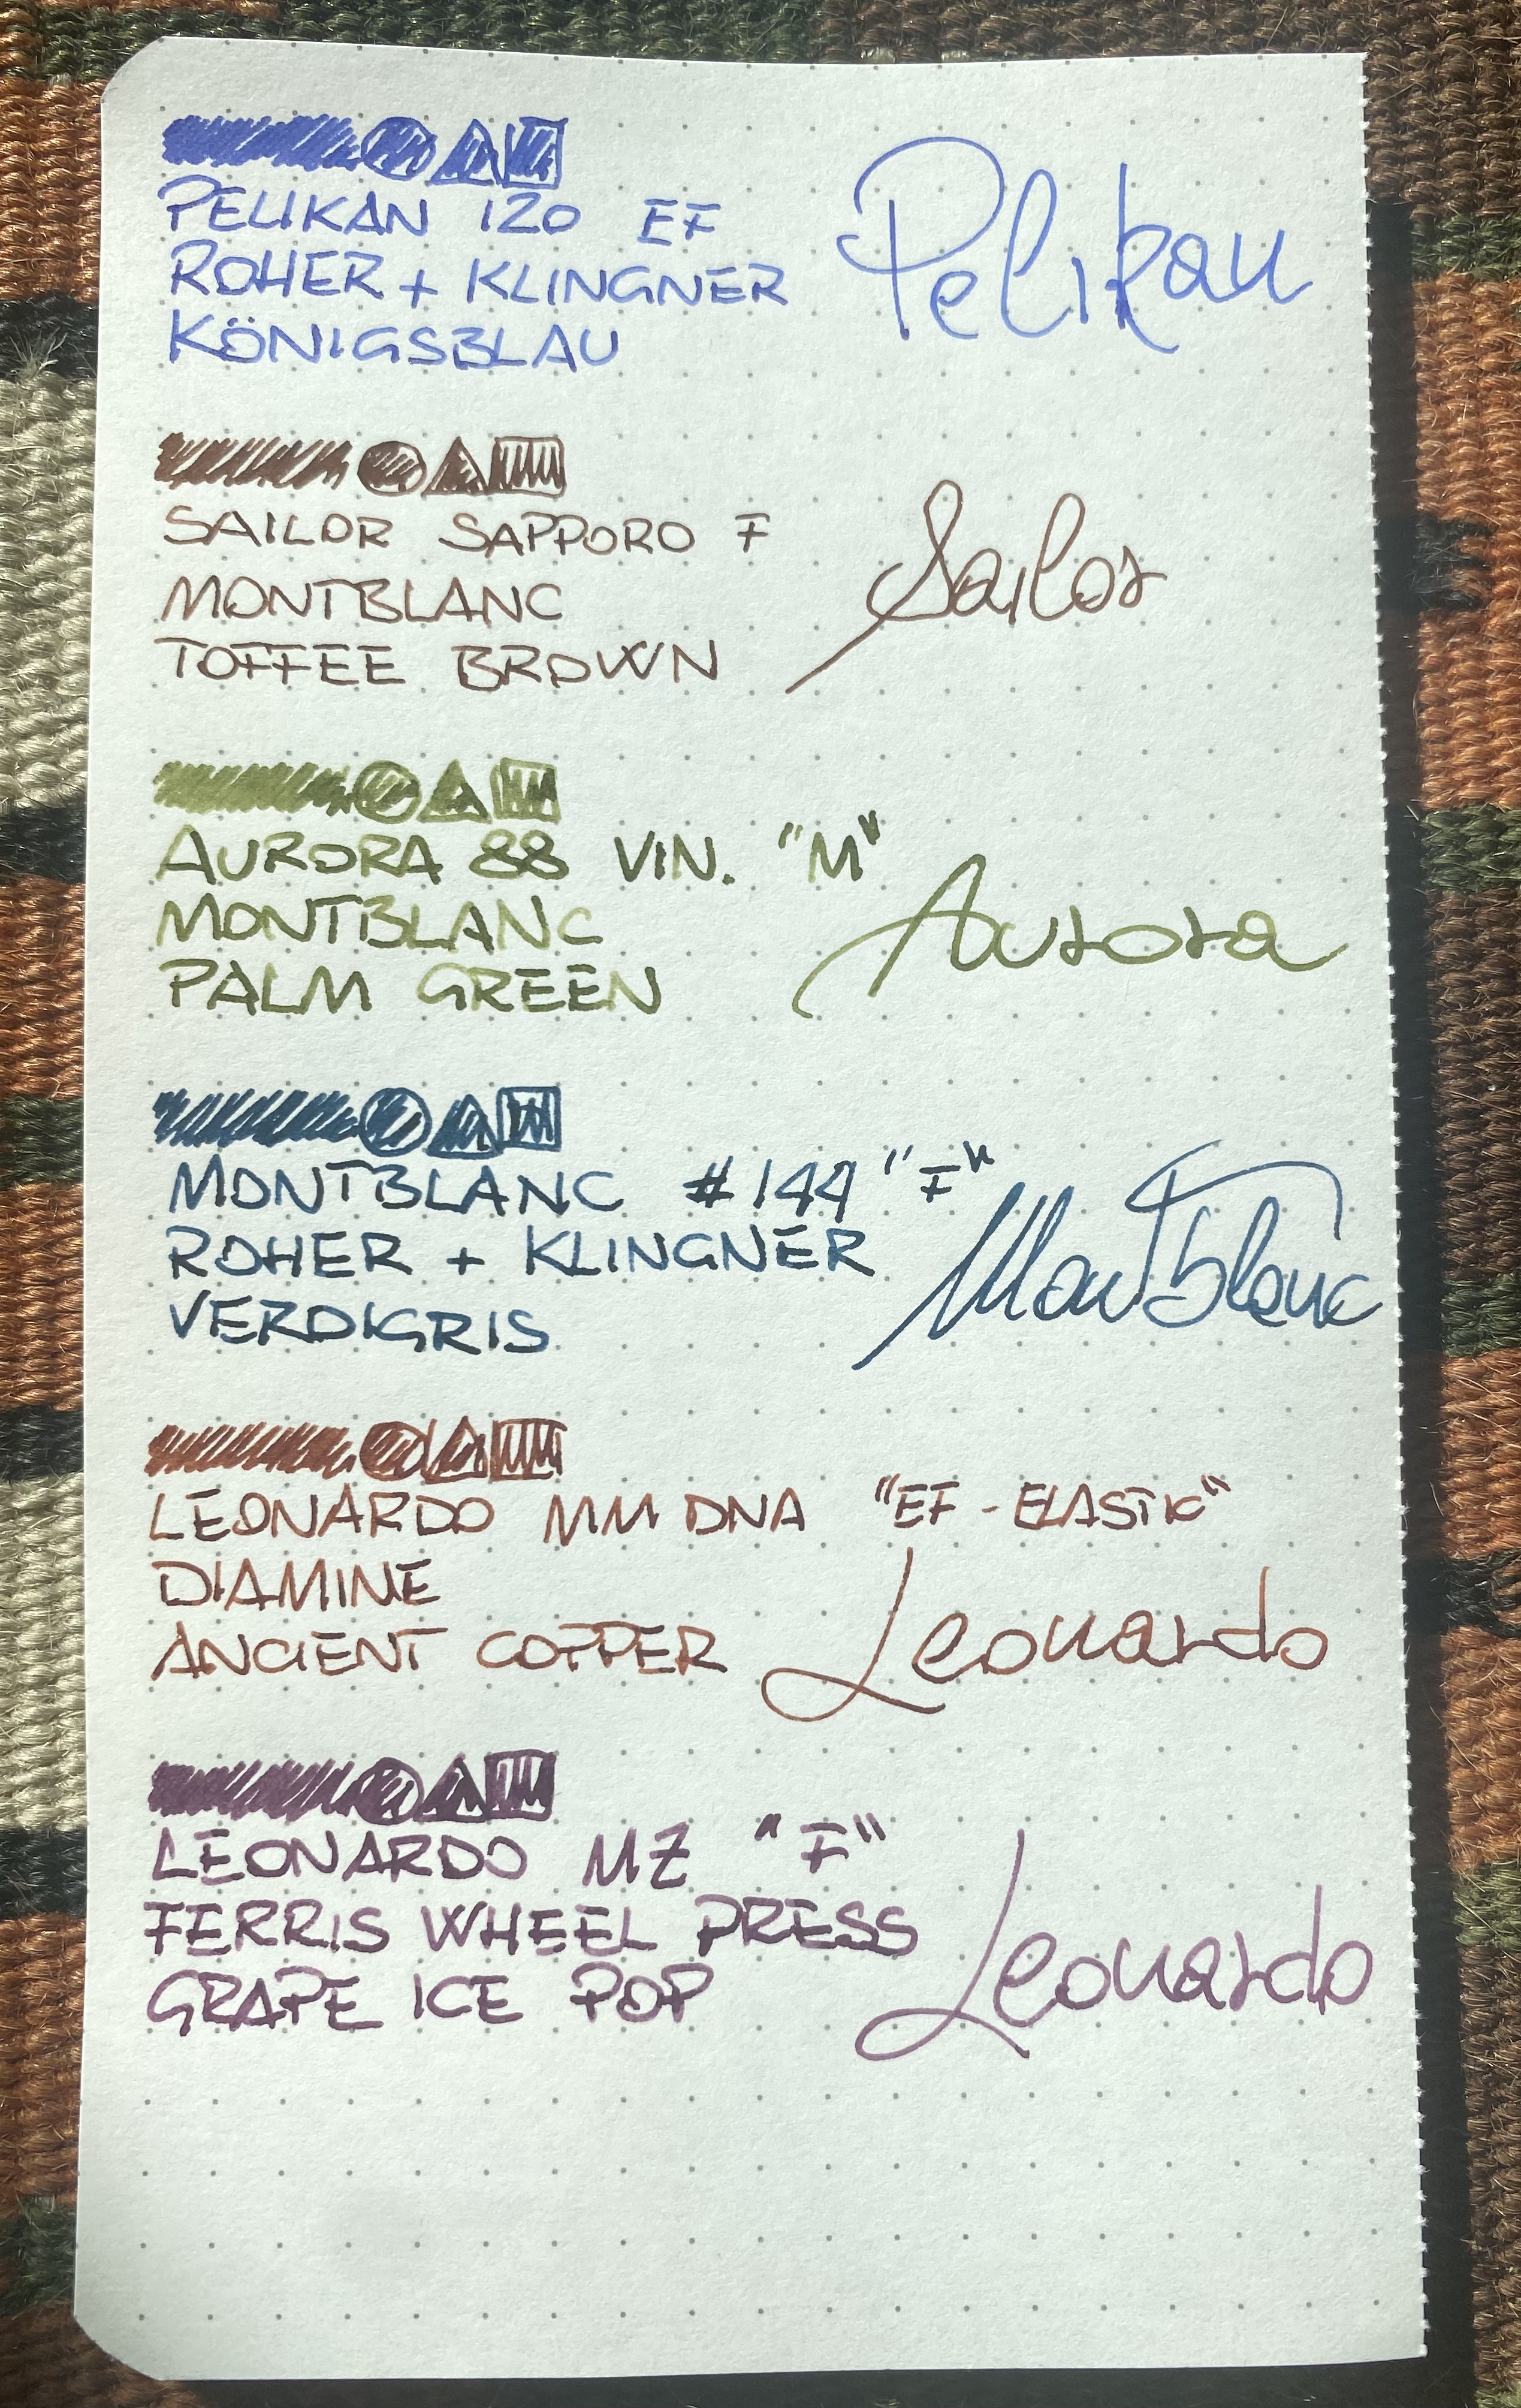 PELIKAN 120 EF
ROHER + KLINGNER
KÖNIGSBLAU
Pelikan
SAILOR SAPPORO F
MONTBLANC
TOFFEE BROWN
Sailor
AURORA 88 VIN. "M"
MONTBLANC
PALM GREEN
Aurora
MONTBLANC #144 "F"
ROHER + KLINGNER
VERDIGRIS
Montblanc
LEONARDO MM DNA "EF - ELASTIC"
DIAMINE
ANCIENT COPPER
Leonardo
LEONARDO MZ "F"
FERRIS WHEEL PRESS
GRAPE ICE POP
Leonardo